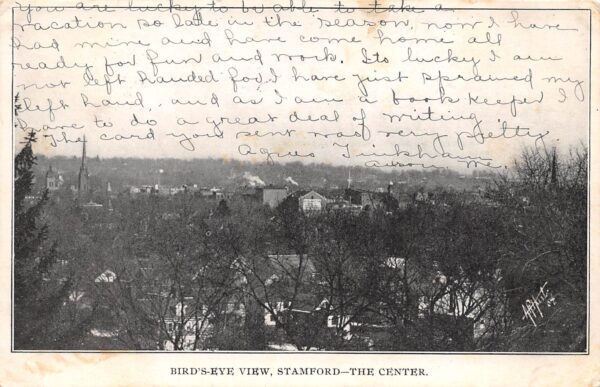 You are lucky to be able to take a
vacation so late in the season, now I have
had mine and have come home all
ready for fun and work. Its lucky I am
not left handed for I have just sprained my
left hand, and as I am a book keeper I
have to do a great deal of writing
The card you sent was very pretty
Agnes Tinkham
BIRD'S-EYE VIEW, STAMFORD—THE CENTER.